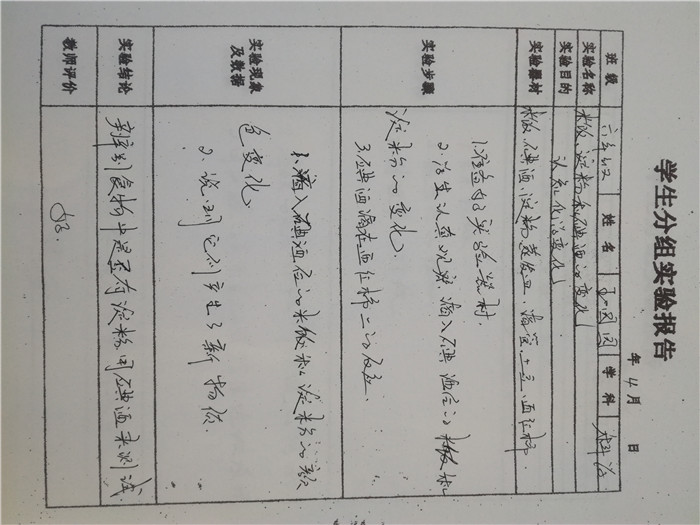 学生分组实验报告
年 4月 日
班级 六年级 姓名 学科 科学
实验名称 米饭、淀粉和碘酒的变化
实验目的 认识化学变化
实验器材 米饭、碘酒、淀粉、蒸发皿、滴管、土豆、面包、
实验步骤
1.准备好实验器材.
2.学生认真观察,滴入碘酒后的米饭和
淀粉的变化.
3.碘酒滴在面包
实验现象及数据
1.滴入碘酒后的米饭和淀粉的颜
色变化.
2.说明它们产生了新物质.
实验结论
辨别食物中是否有淀粉用碘酒来测试
教师评价 好.